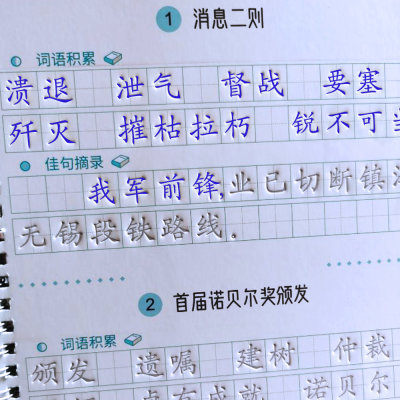 1 消息二则
词语积累
溃退 泄气 督战 要塞
歼灭 摧枯拉朽 锐不可当
佳句摘录
我军前锋,业已切断镇江
无锡段铁路线。
2 首届诺贝尔奖颁发
词语积累
颁发 遗嘱 建树 仲裁
卓有成就 诺贝尔